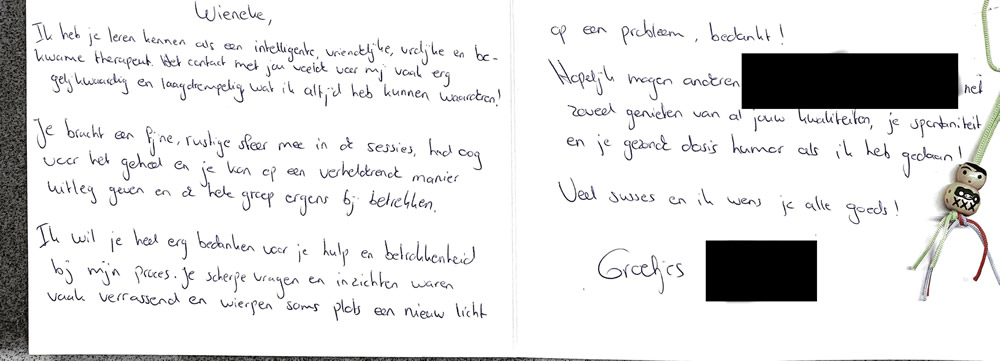 Wieneke,
Ik heb je leren kennen als een intelligente, vriendelijke, vrolijke en be-
kwame therapeut. Het contact met jou voelde voor mij vaak erg
gelijkwaardig en laagdrempelig wat ik altijd heb kunnen waarderen!
Je bracht een fijne, rustige sfeer mee in de sessies, had oog
voor het geheel en je kon op een verhelderende manier
uitleg geven en de hele groep ergens bij betrekken.
Ik wil je heel erg bedanken voor je hulp en betrokkenheid
bij mijn proces. Je scherpe vragen en inzichten waren
vaak verrassend en wierpen soms plots een nieuw licht
op een probleem, bedankt!
Hopelijk mogen anderen net
zoveel genieten van al jouw kwaliteiten, je spontaniteit
en je gezonde dosis humor als ik heb gedaan!
Veel succes en ik wens je alle goeds!
Groetjes
XXX